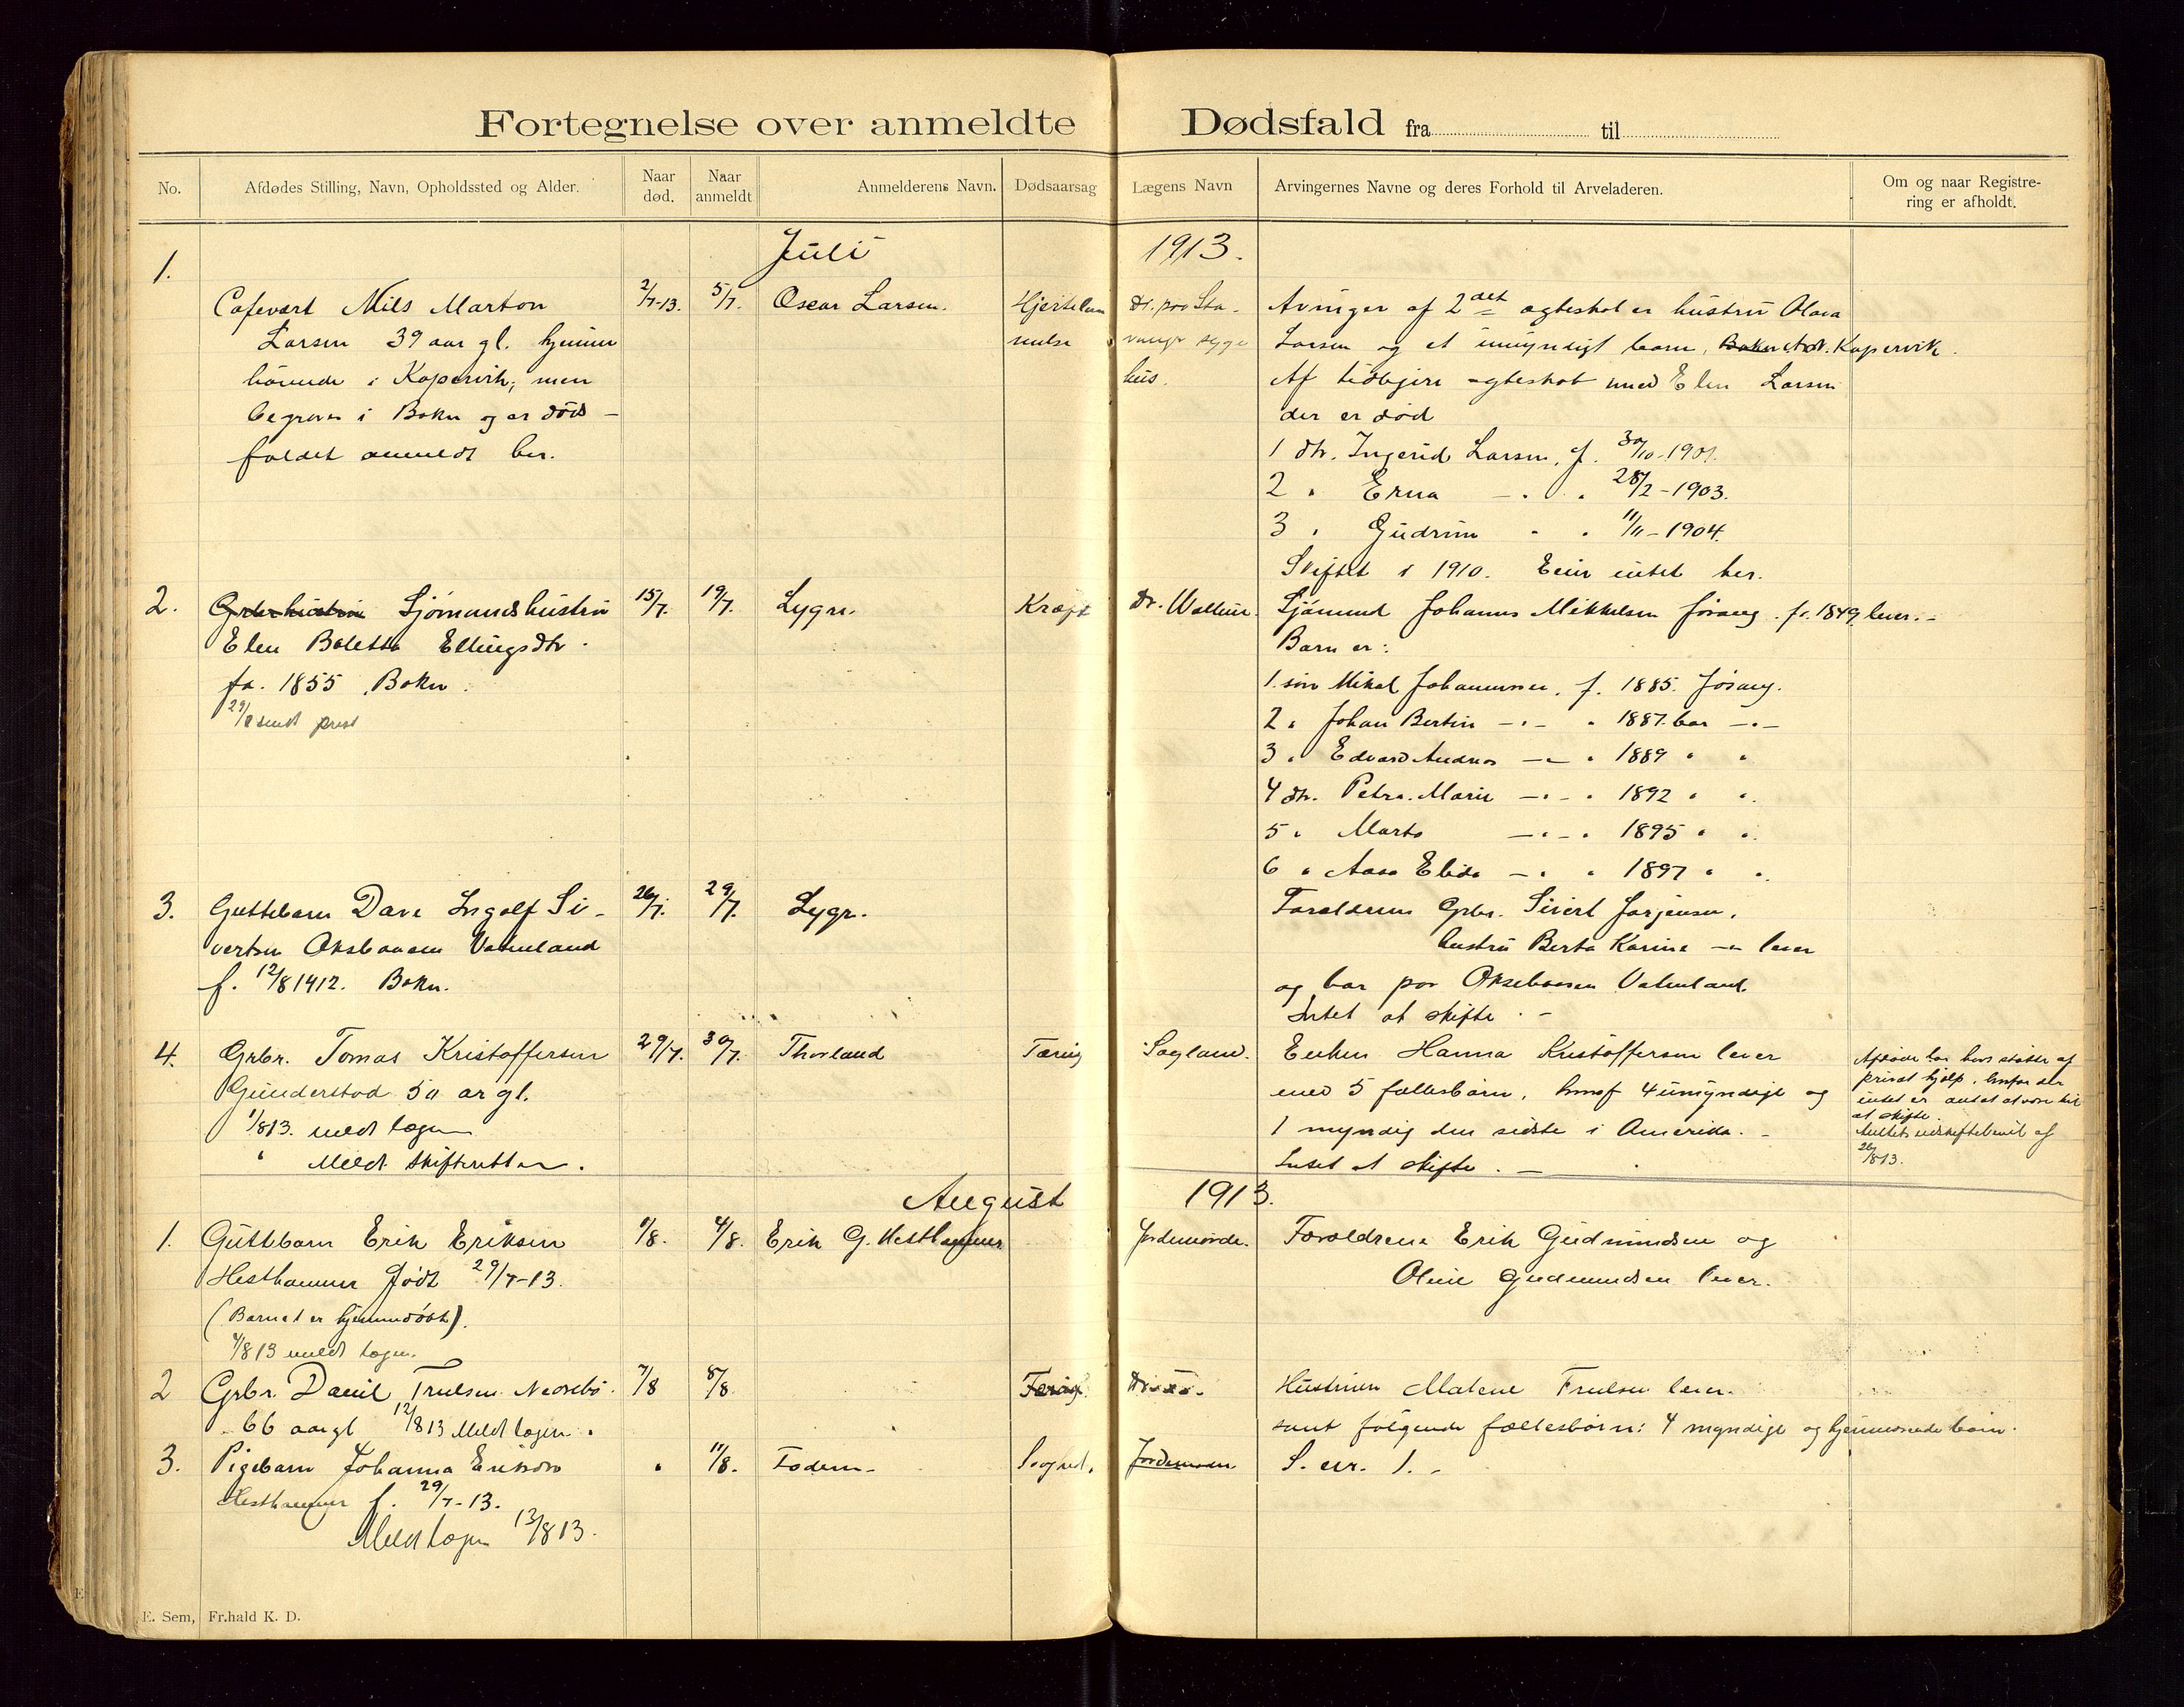 Fortegnelse over anmeldte Dødsfald fra til
No. Afdødes Stilling, Navn, Opholdssted og Alder. Naar død. Naar anmeldt Anmelderens Navn. Dødsaarsag Lægens Navn Arvingernes Navne og deres Forhold til Arveladeren. Om og naar Registrering er afholdt.
Juli 1913.
1.
Cafevært Nils Marton
Larsen 39 aar gl. hjemme
hörende i Kopervik, men
begraves i Bokn og er döds-
faldet anmeldt her.
2/7-13. 5/7. Oscar Larsen.
Hjertelam
melse
dr. paa Sta-
vanger syge
hus.
Arvinger af 2det ægteskab er hustru Olava
Larsen og et umyndigt barn, Kopervik.
Af tidligere ægteskab med Elen Larsen
der er död
1 dtr. Ingerid Larsen, f. 30/10-1901.
2 " Erna - " " 28/2-1903.
3 " Gudrun " " 11/11-1904.
Skiftet i 1910. Eier intet her.
2. Sjömandshustru
Elen Bolette Ellingsdtr.
fø. 1855, Bokn.
29/8 sendt prest
15/7. 19/7. Lygre. Kræft Dr. Wallem.
Sjömand Johannes Mikkelsen Jösang. fø. 1849, lever.-
Barn er:
1. sön Mikal Johannessen, f. 1885. Jösang.
2 " Johan Bertin -"- " 1887. bor -"-
3 " Edvard Andreas -"- " 1889 " "
4 dtr. Petra Marie -"- " 1892 " "
5 " Marta -"- " 1895 " "
6 " Aasa Elida - " " 1897 " "
3. Guttebarn Dave Ingolf Si-
vertsen Oksbaasen Vatneland
f. 12/8 1912. Bokn.
26/7. 29/7. Lygr.
Forældrene Grbr. Sivert Jørgensen,
hustru Berta Karine -"- lever
og bor paa Oksebaasen Vatneland.
Intet at skifte. -
4. Grbr. Tomas Kristoffersen
Gunderstad 50 ar gl.
1/8 13. meldt lægen
" Meldt skifteretten.
29/7. 30/7. Thorland Tæring Sagland.
Enken Hanna Kristoffersen lever
med 5 fællesbörn, hvoraf 4 umyndige og
1 myndig den sidste i Amerika. -
Intet at skifte. -
privat hjelp, hvorfor der
intet er antat at være til
at skifte.
26/8 13.
August 1913.
1. Guttebarn Erik Eriksen
Hesthammer födt 29/7-13.
(Barnet er hjemmedöbt).
4/8 13 meldt lægen.
1/8. 4/8. Erik G. Hesthammer Jordemoder.
Forældrene Erik Gudmundsen og
Oline Gudmundsen lever.
2 Grbr. Daniel Trulsen Nedrebö.
66 aar gl. 12/8 13 Meldt lægen.
7/8 8/8 Tæring
Hustruen Malene Trulsen lever
samt følgende fællesbörn: 4 myndige og hjemmeværende börn.
3. Pigebarn Johanna Eriksdr
Hesthammer f. 29/7-13.
Meldt lægen 13/8 13.
" 11/8. Faderen Jordemoder S. nr. 1. -
E. Sem, Fr.hald K. D.